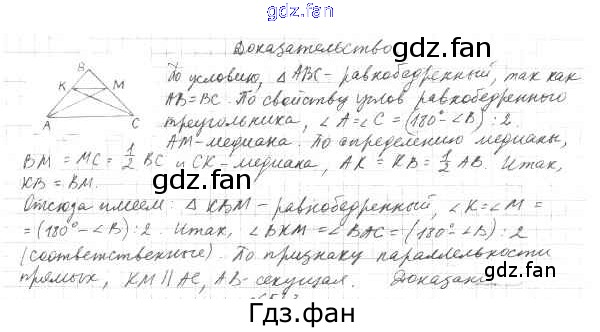 gdz.fan
Доказательство
gdz.fan
B
По условию, △ABC - равнобедренный, так как
K M
AB=BC. По свойству углов равнобедренного
треугольника, ∠A=∠C = (180°-∠B) : 2.
A C
AM-медиана. По определению медианы,
BM = MC = 1/2 BC и CK - медиана, AK = KB = 1/2 AB. Итак,
KB = BM.
gdz.fan
gdz.fan
Отсюда имеем: △KBM - равнобедренный, ∠K=∠M =
= (180°-∠B) : 2. Итак, ∠BKM = ∠BAC = (180°-∠B) : 2
(соответственные). По признаку параллельности
прямых, KM || AC, AB-секущая. Доказано
gdz.fan
Гдз.фан